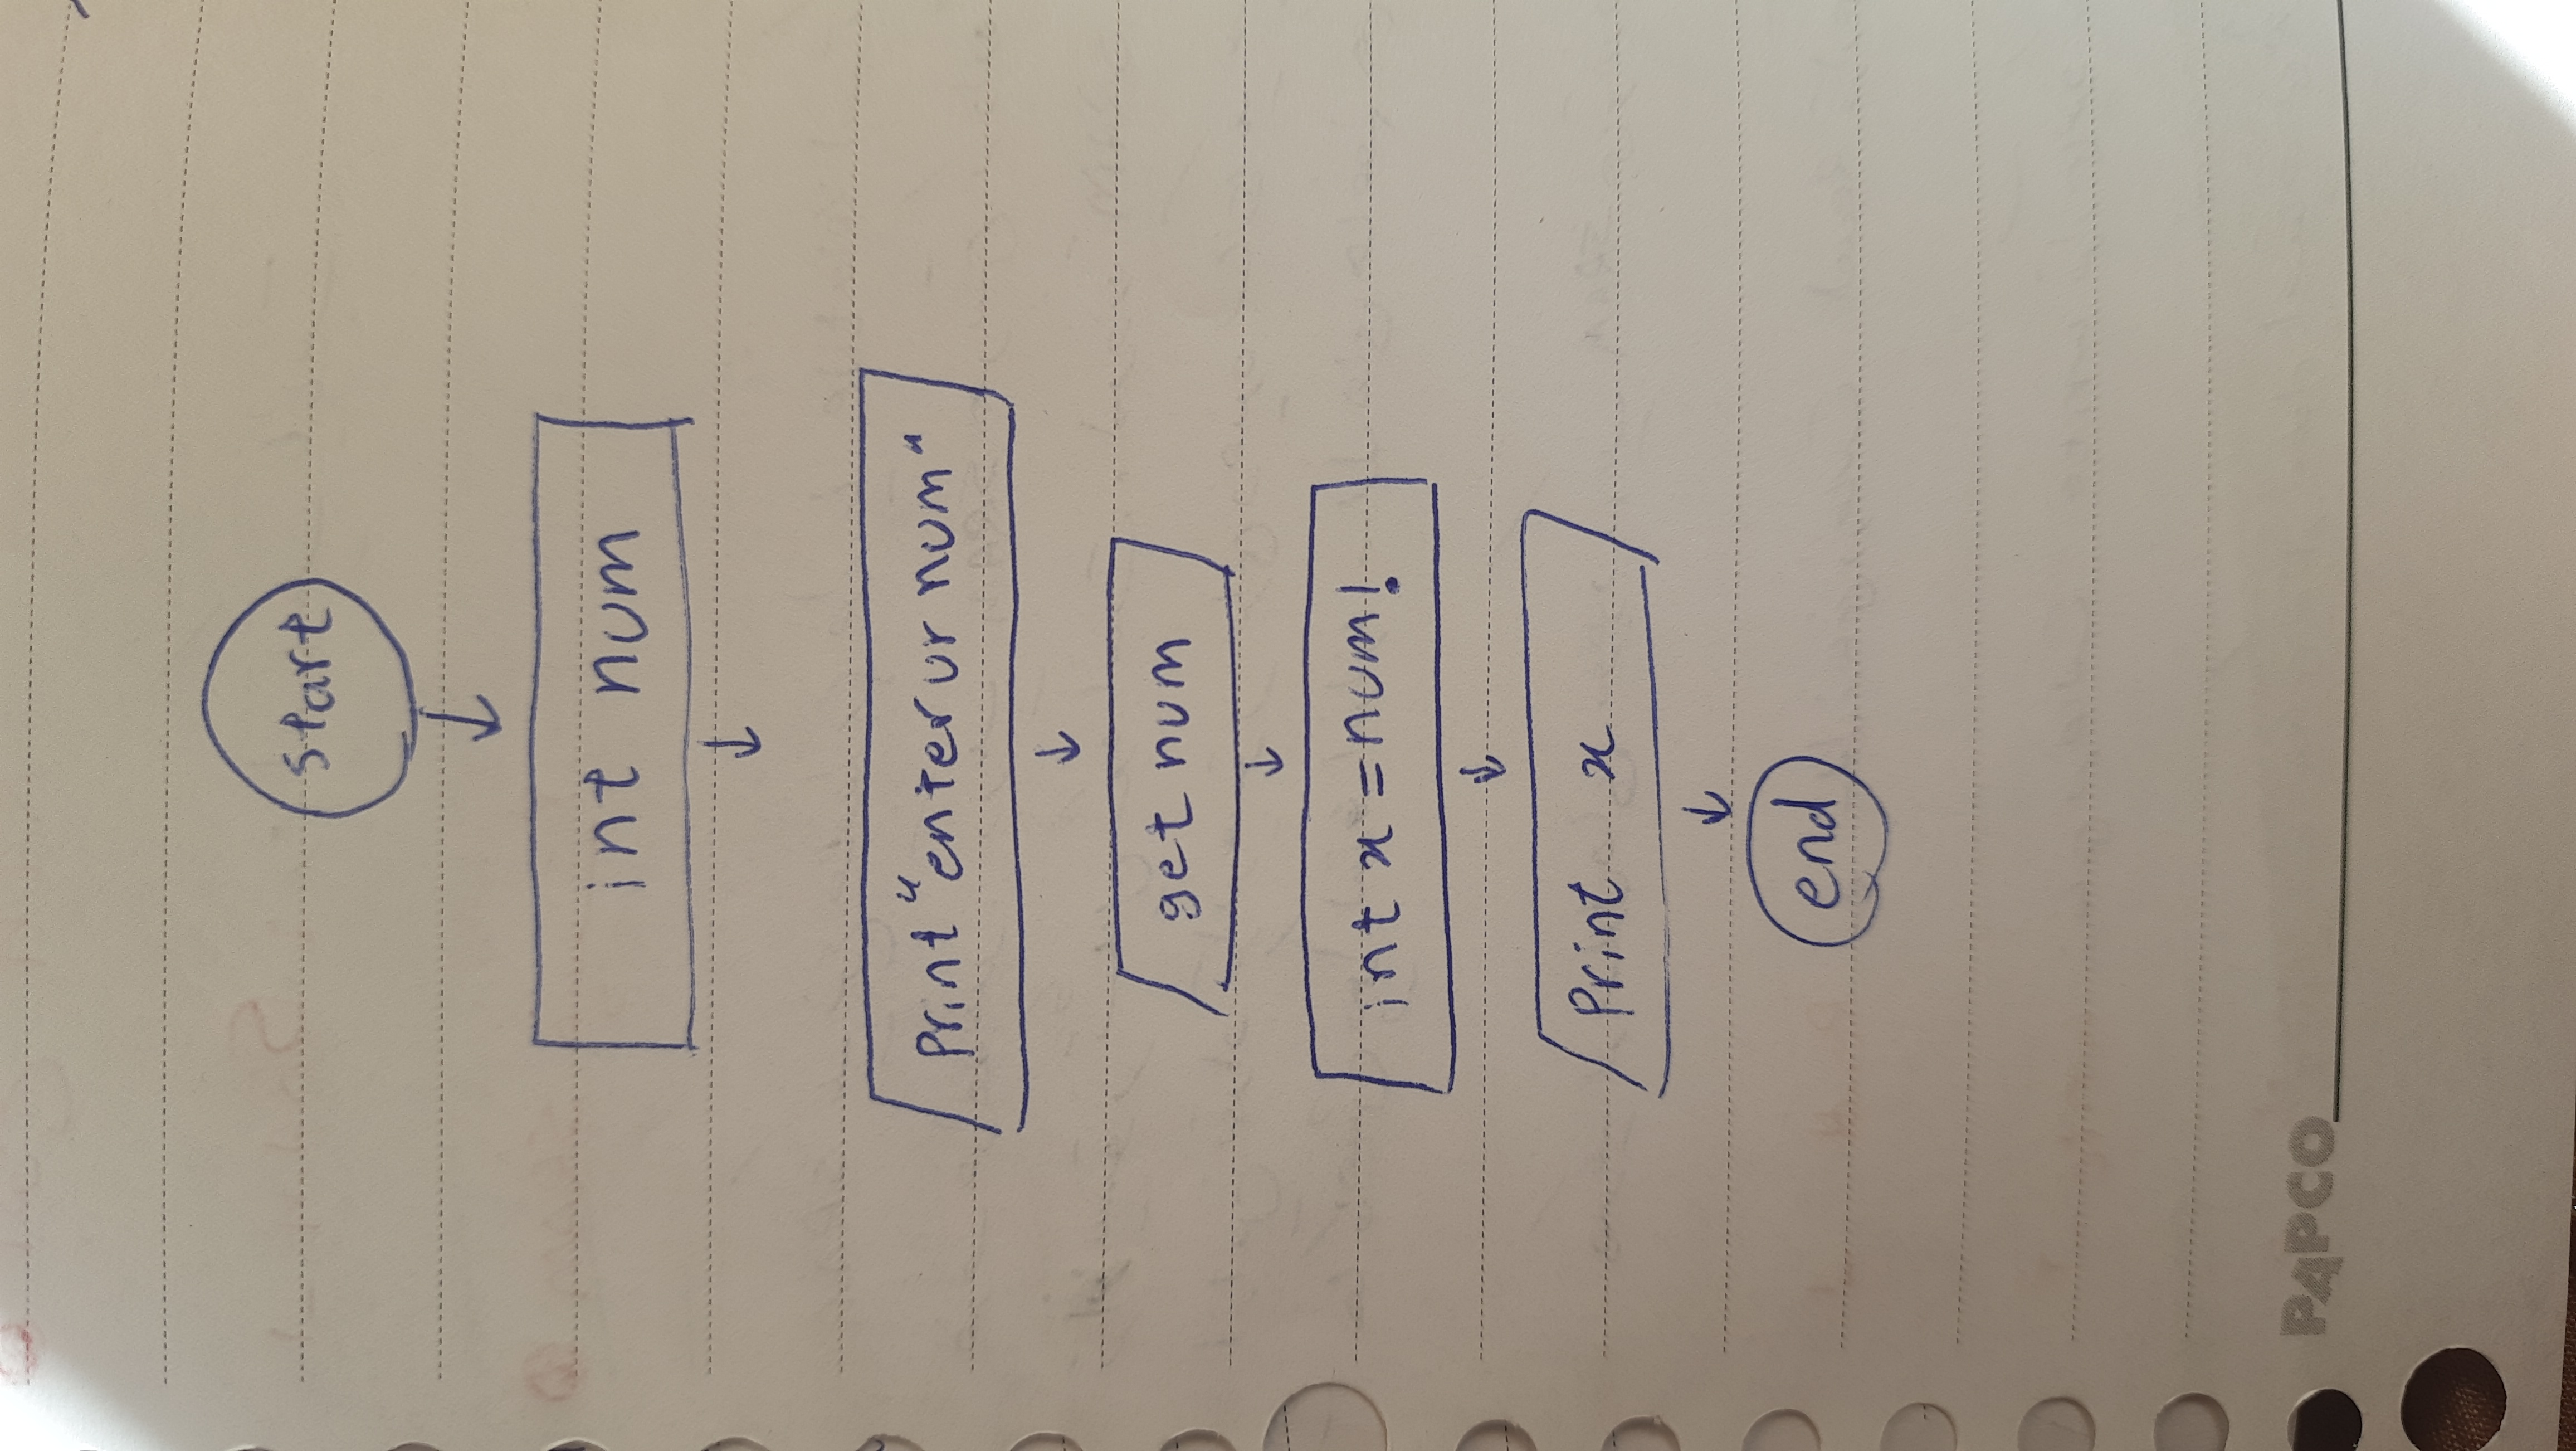 start
int num
Print "enter ur num"
get num
int x = num!
Print x
end
PAPCO